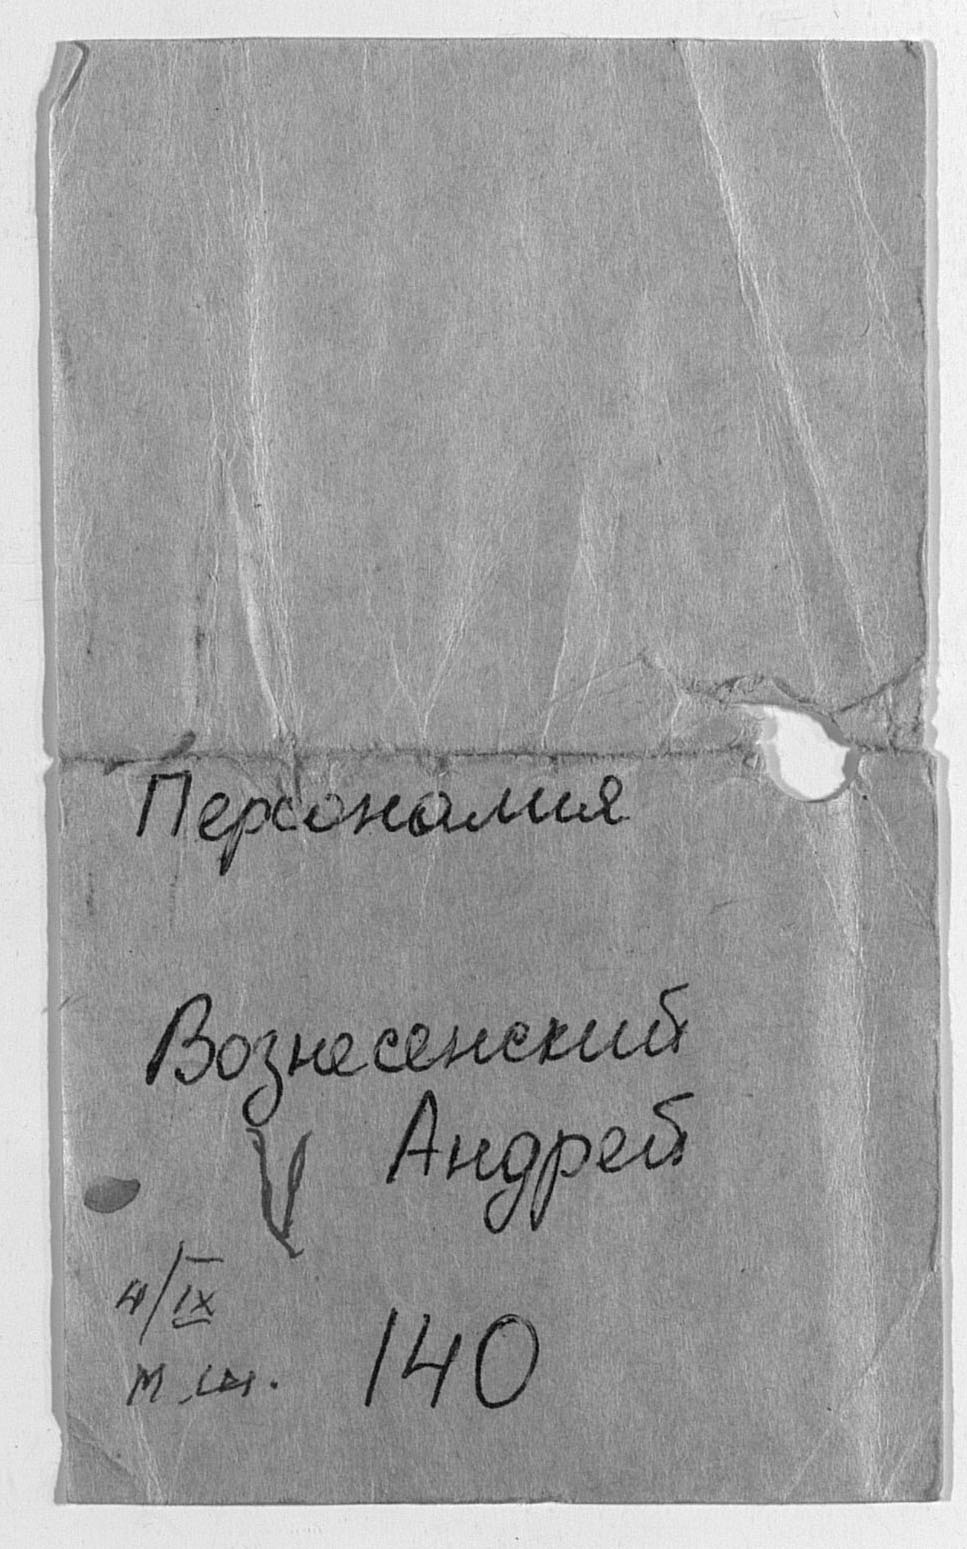 Персоналия
Вознесенский
Андрей
4/IX
140